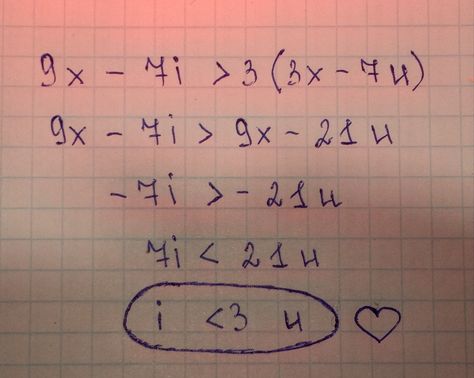 9x - 7i > 3 (3x - 7u)
9x - 7i > 9x - 21u
-7i > - 21u
7i < 21u
i < 3 u ♡